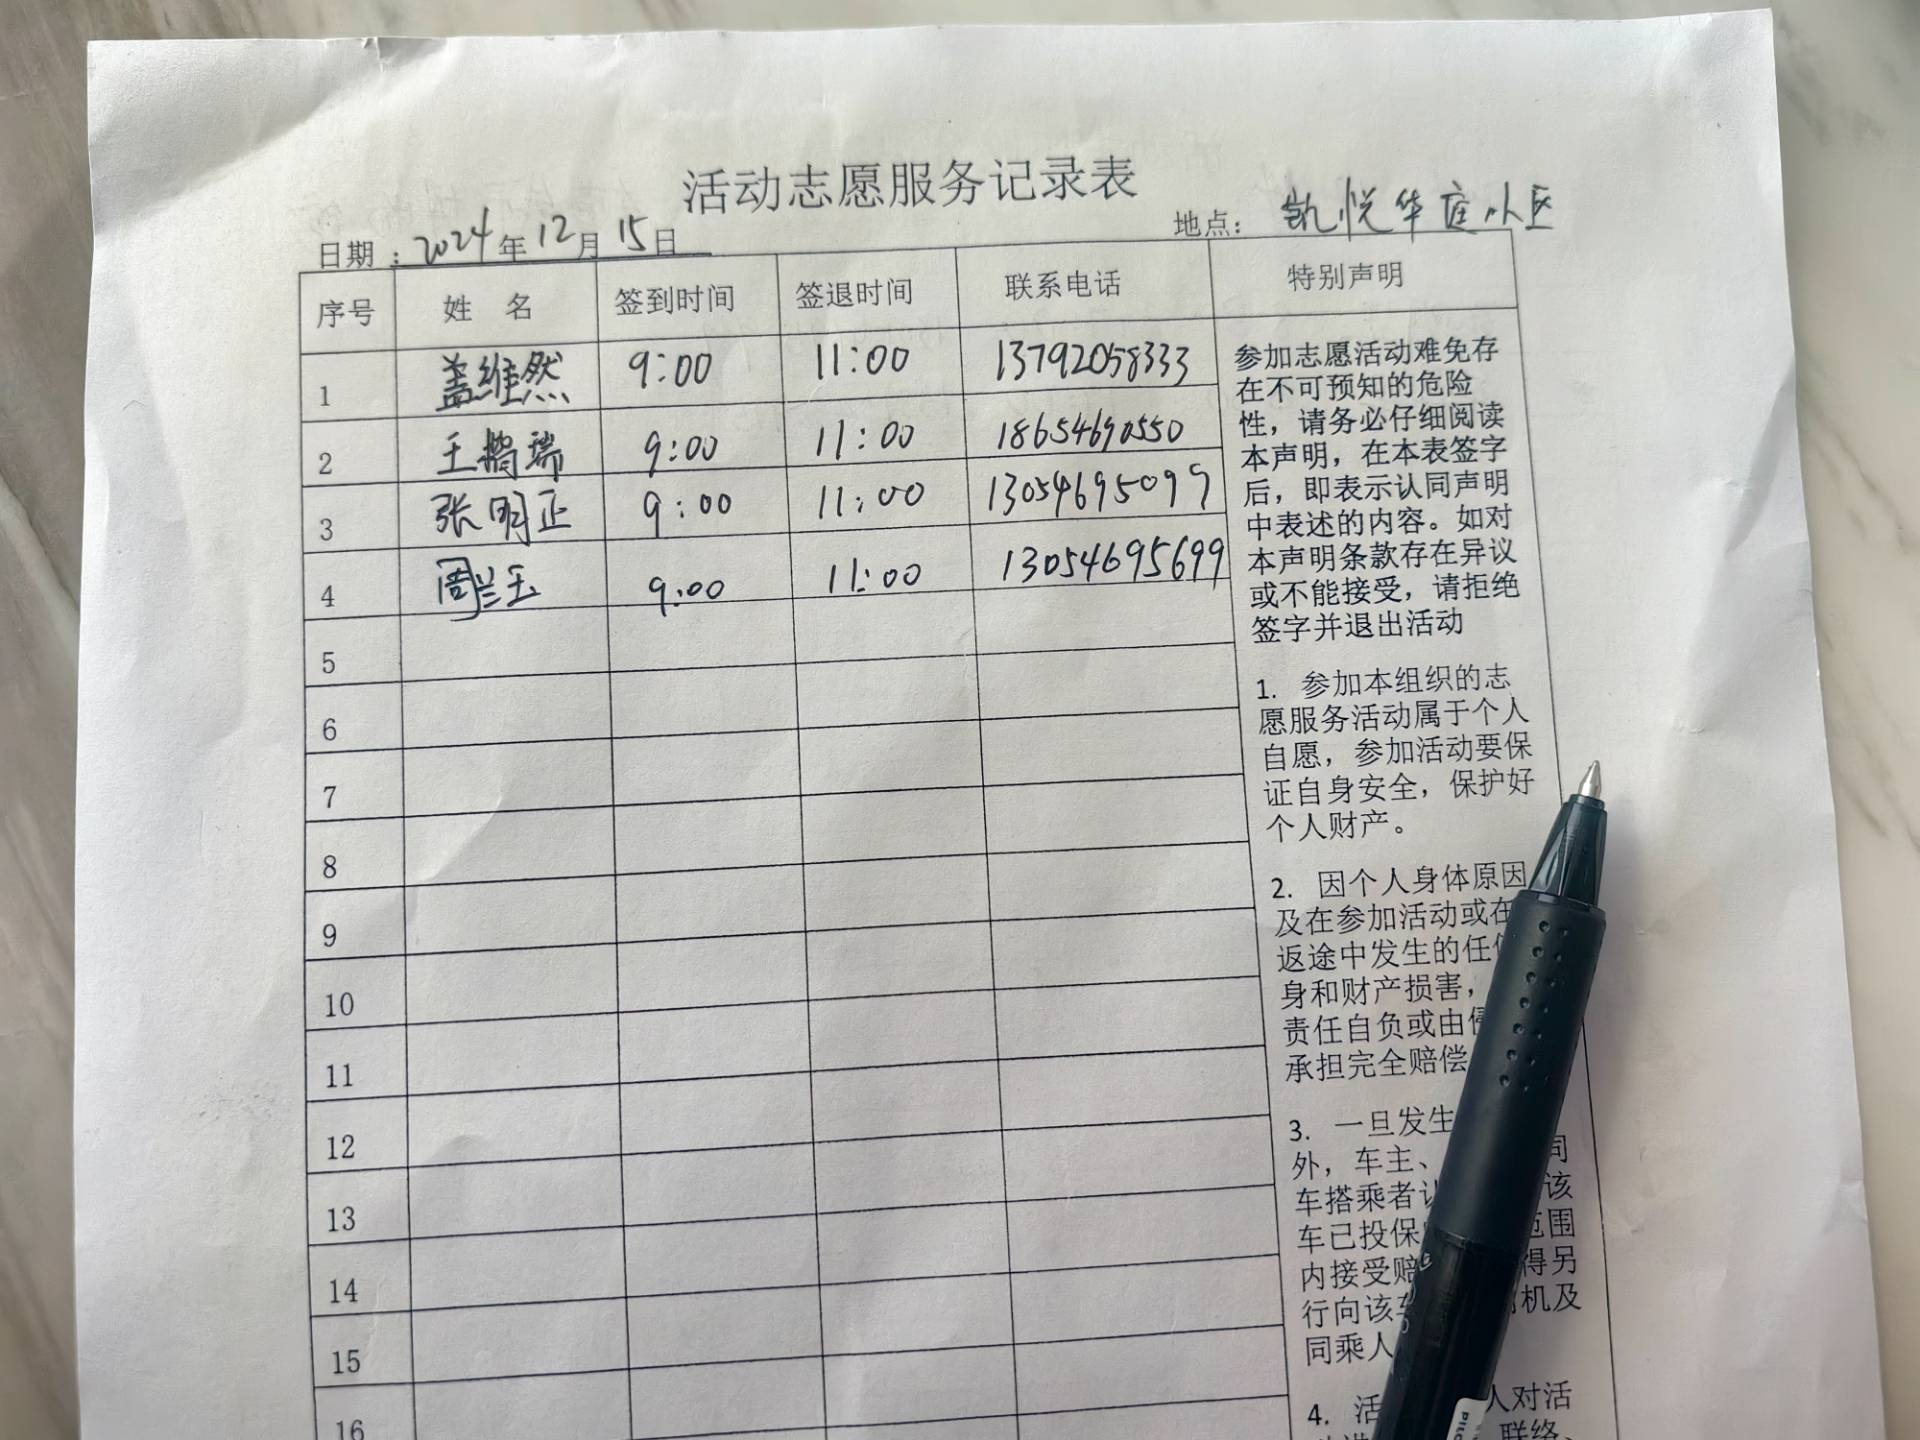 活动志愿服务记录表
日期：2024年12月15日 地点：凯悦华庭小区
序号 姓 名 签到时间 签退时间 联系电话 特别声明
1 盖维然 9:00 11:00 13792058333
2 王 瑞 9:00 11:00 18654690550
3 张明正 9:00 11:00 13054695099
4 周兰玉 9:00 11:00 13054695699
5
6
7
8
9
10
11
12
13
14
15
16
参加志愿活动难免存
在不可预知的危险
性，请务必仔细阅读
本声明，在本表签字
后，即表示认同声明
中表述的内容。如对
本声明条款存在异议
或不能接受，请拒绝
签字并退出活动
1. 参加本组织的志
愿服务活动属于个人
自愿，参加活动要保
证自身安全，保护好
个人财产。
2. 因个人身体原因
及在参加活动或在
返途中发生的任
身和财产损害，
责任自负或由
承担完全赔偿
3. 一旦发生
外，车主、 同
车搭乘者 该
车已投保 范围
内接受赔 得另
行向该车 机及
同乘人
4. 活 人对活
联络、